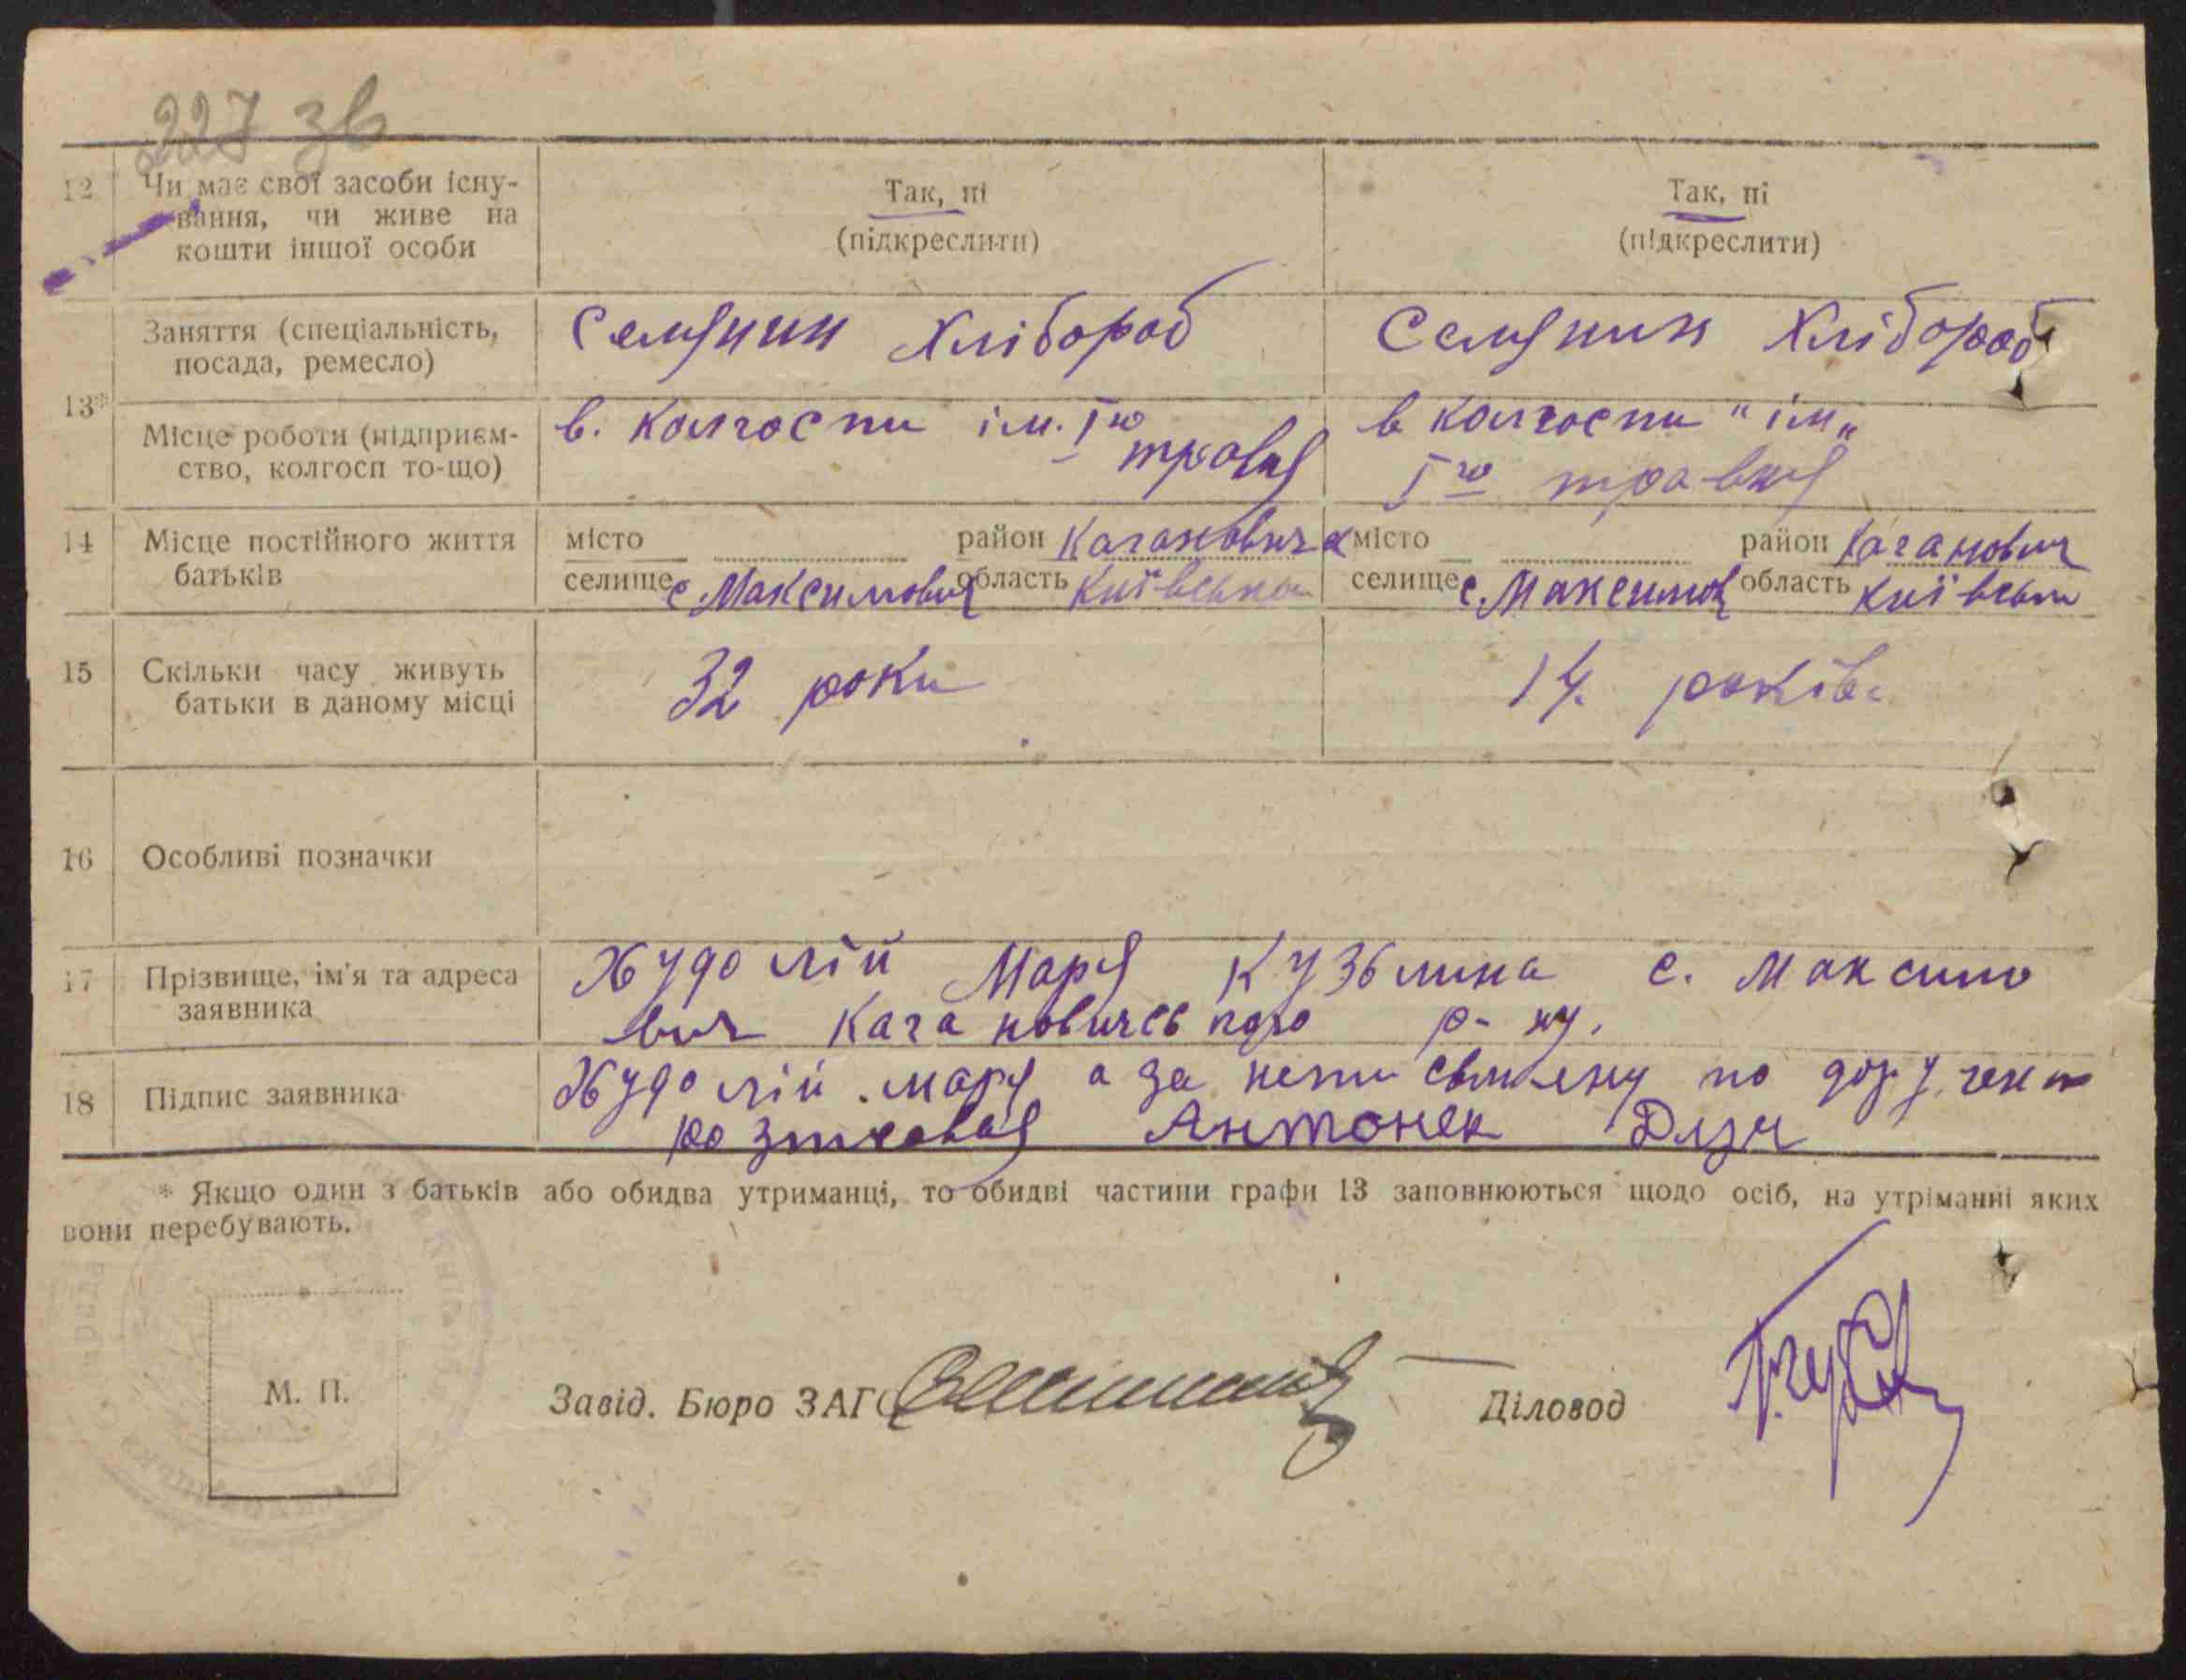 227 зв
12 Чи має свої засоби існу-
вання, чи живе на
кошти іншої особи
Так, ні
(підкреслити)
Так, ні
(підкреслити)
Заняття (спеціальність,
посада, ремесло)
Селянин Хлібороб
Селянин Хлібороб
13*
Місце роботи (підприєм-
ство, колгосп то-що)
в. колгоспи ім. 1го
травня
в колгоспи "ім„
1го травня
14 Місце постійного життя
батьків
місто район Каганович
селище с Максимович область Київська
місто район Каганович
селище с. Максимов область Київськ
15 Скільки часу живуть
батьки в даному місці
32 роки
14. років
16 Особливі позначки
17 Прізвище, ім'я та адреса
заявника
Худолій Маря Кузьмина с. Максимо
вич Кагановичського р-ну.
18 Підпис заявника
Худолій. Маря а за неписьмену по доручен
Антонек
* Якщо один з батьків або обидва утриманці, то обидві частини графи 13 заповнюються щодо осіб, на утріманні яких
вони перебувають.
М. П.
Завід. Бюро ЗАГС
Діловод